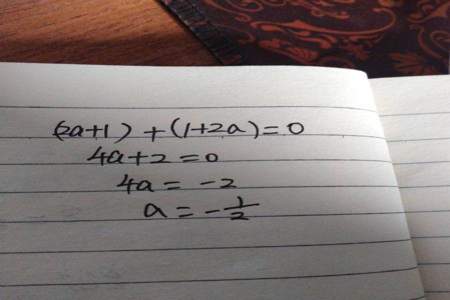 (2a+1)+(1+2a)=0
4a+2=0
4a=-2
a=-1/2